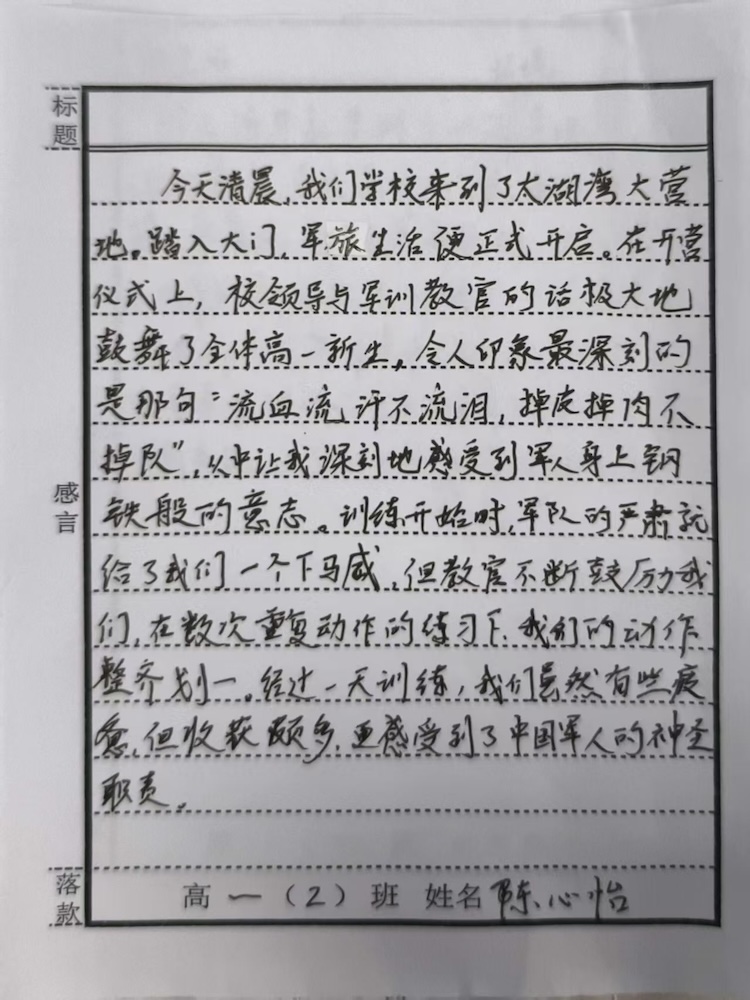 标题
今天清晨，我们学校来到了太湖湾大营
地。踏入大门，军旅生活便正式开启。在开营
仪式上，校领导与军训教官的话极大地
鼓舞了全体高一新生，令人印象最深刻的
是那句“流血流汗不流泪，掉皮掉肉不
掉队”，从中让我深刻地感受到军人身上钢
铁般的意志。训练开始时，军队的严肃就
给了我们一个下马威，但教官不断鼓厉我
们，在数次重复动作的练习下，我们的动作
整齐划一。经过一天训练，我们虽然有些疲
惫，但收获颇多，更感受到了中国军人的神圣
职责。
感言
落款
高一（2）班 姓名 陈心怡